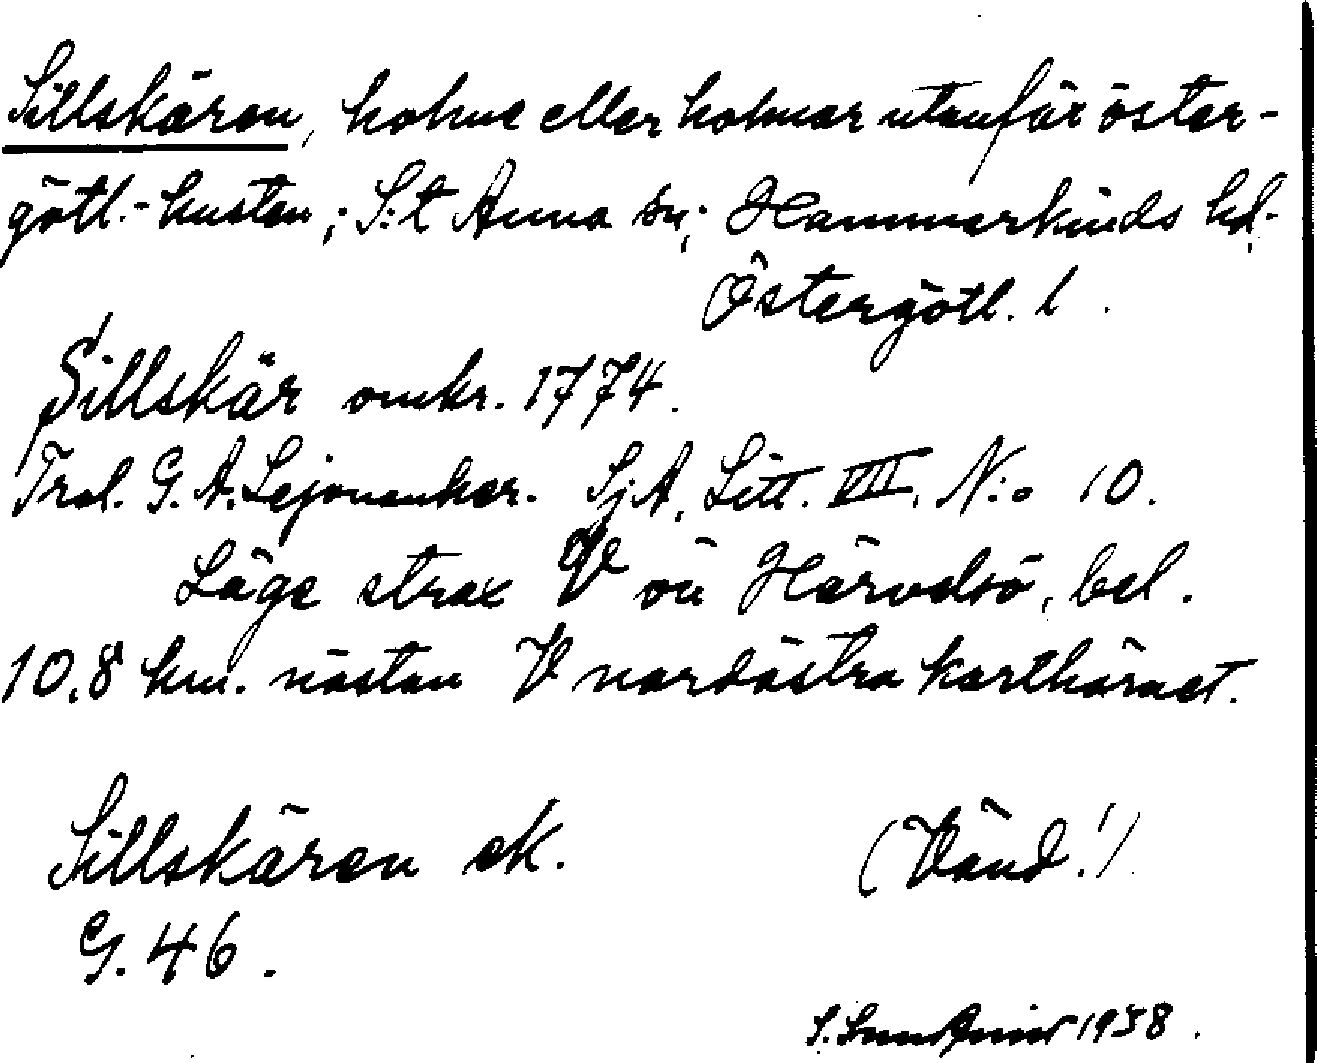 Sillskären, holme eller holmar utanför öster-
götl.-kusten; S:t Anna sn; Hammarkinds hd.
Östergötl. l.
Sillskär omkr. 1774.
Trol. G. A. Lejonanker. SjA, Litt. VIII. N:o 10.
Läge strax V om Härvdsö, bel.
10,8 km. nästan V nordöstra karthörnet.
Sillskären ek. (Vänd!)
G. 46.
S. 1938.